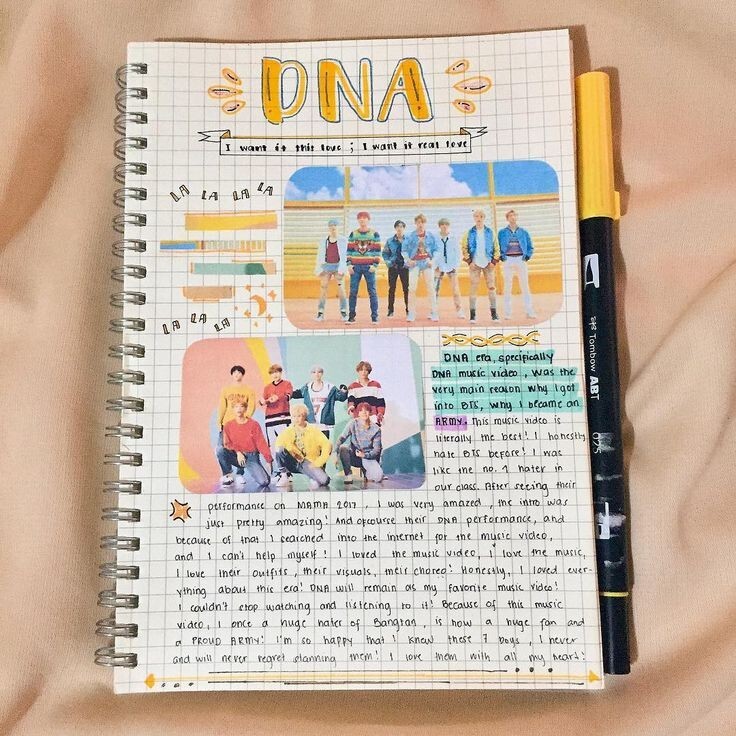 DNA
I want it this love ; I want it real love
LA LA LA LA
LA LA LA
DNA era, specifically
DNA music video, was the
very main reason why I got
into BTS, why I became an
ARMY. This music video is
literally the best! I honestly
hate BTS before! I was
like the no. 1 hater in
our class. After seeing their
performance on MAMA 2017, I was very amazed, the intro was
just pretty amazing! And ofcourse their DNA performance, and
because of that I searched into the internet for the music video,
and I can't help myself! I loved the music video, I love the music,
I love their outfits, their visuals, their choreo! Honestly, I loved ever-
ything about this era! DNA will remain as my favorite music video!
I couldn't stop watching and listening to it! Because of this music
video, I once a huge hater of Bangtan, is now a huge fan and
a PROUD ARMY! I'm so happy that I knew these 7 boys, I never
and will never regret stanning them! I love them with all my heart!
Tombow ABT
025